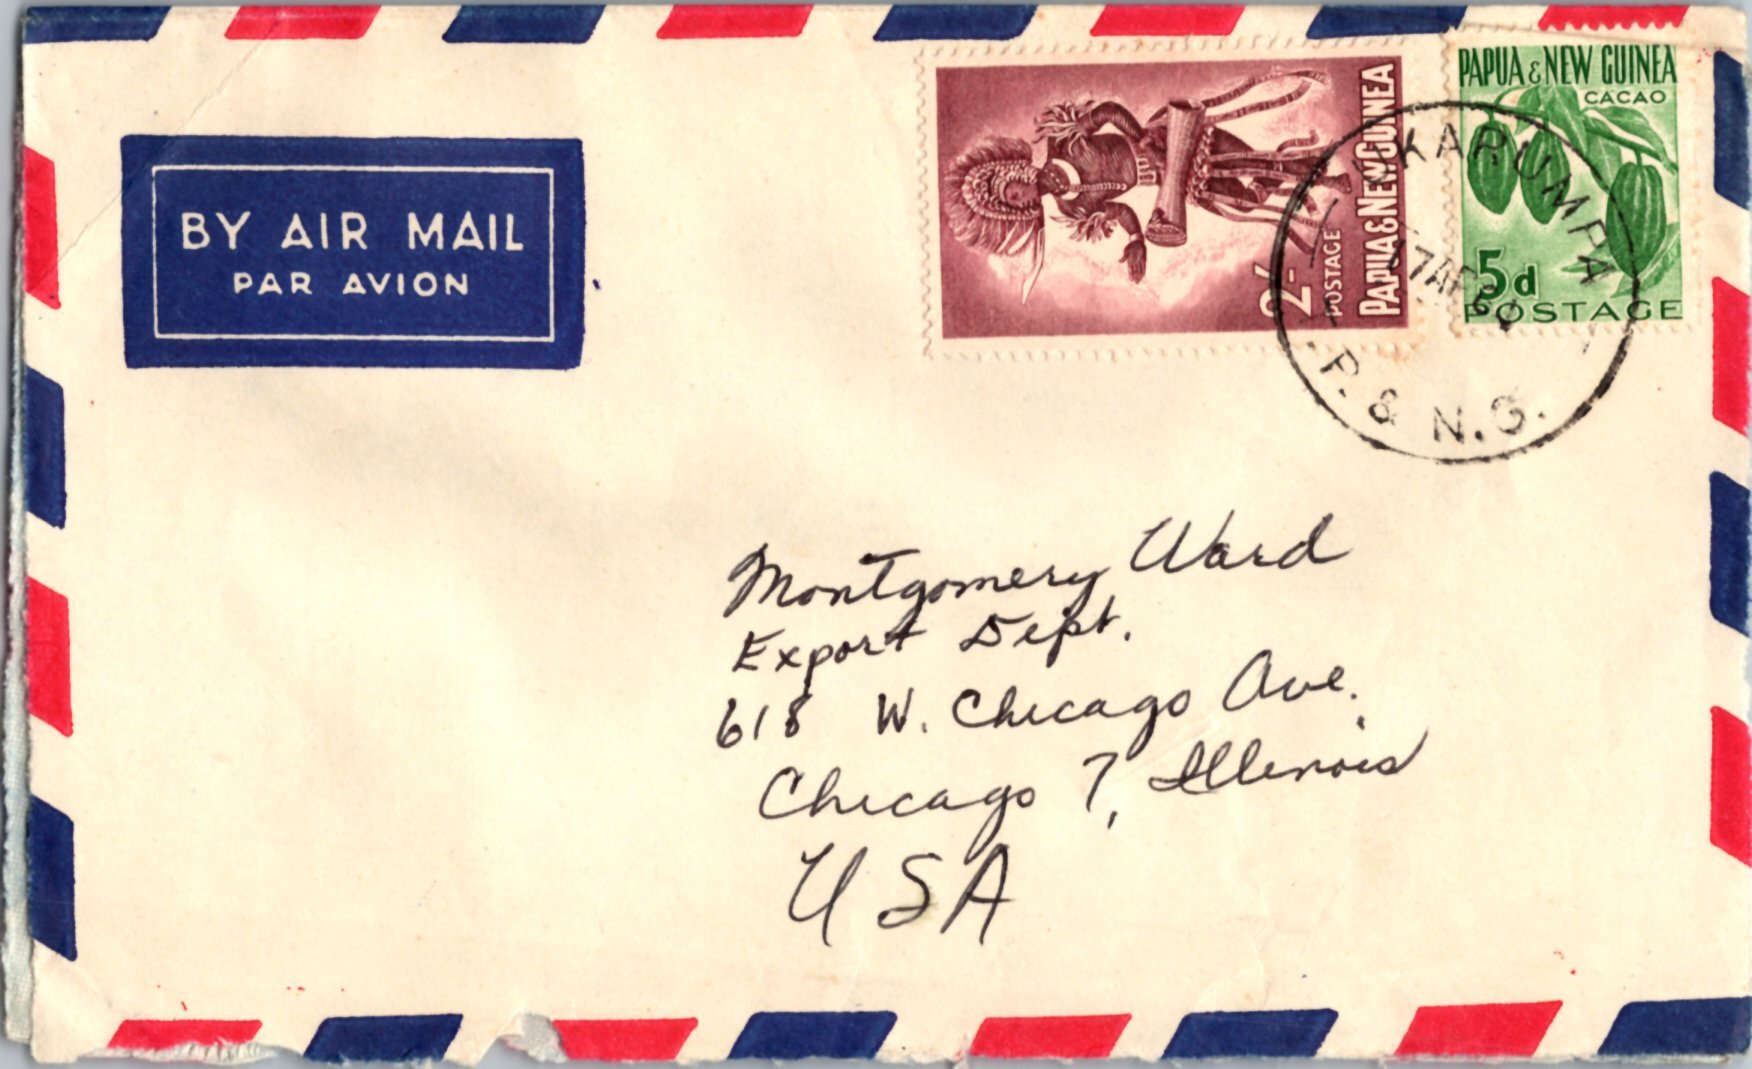 BY AIR MAIL
PAR AVION
PAPUA & NEW GUINEA
POSTAGE
2/-
PAPUA & NEW GUINEA
CACAO
5d
POSTAGE
UKARUMPA
P. & N.G.
Montgomery Ward
Export Dept.
618 W. Chicago Ave.
Chicago 7, Illinois
USA